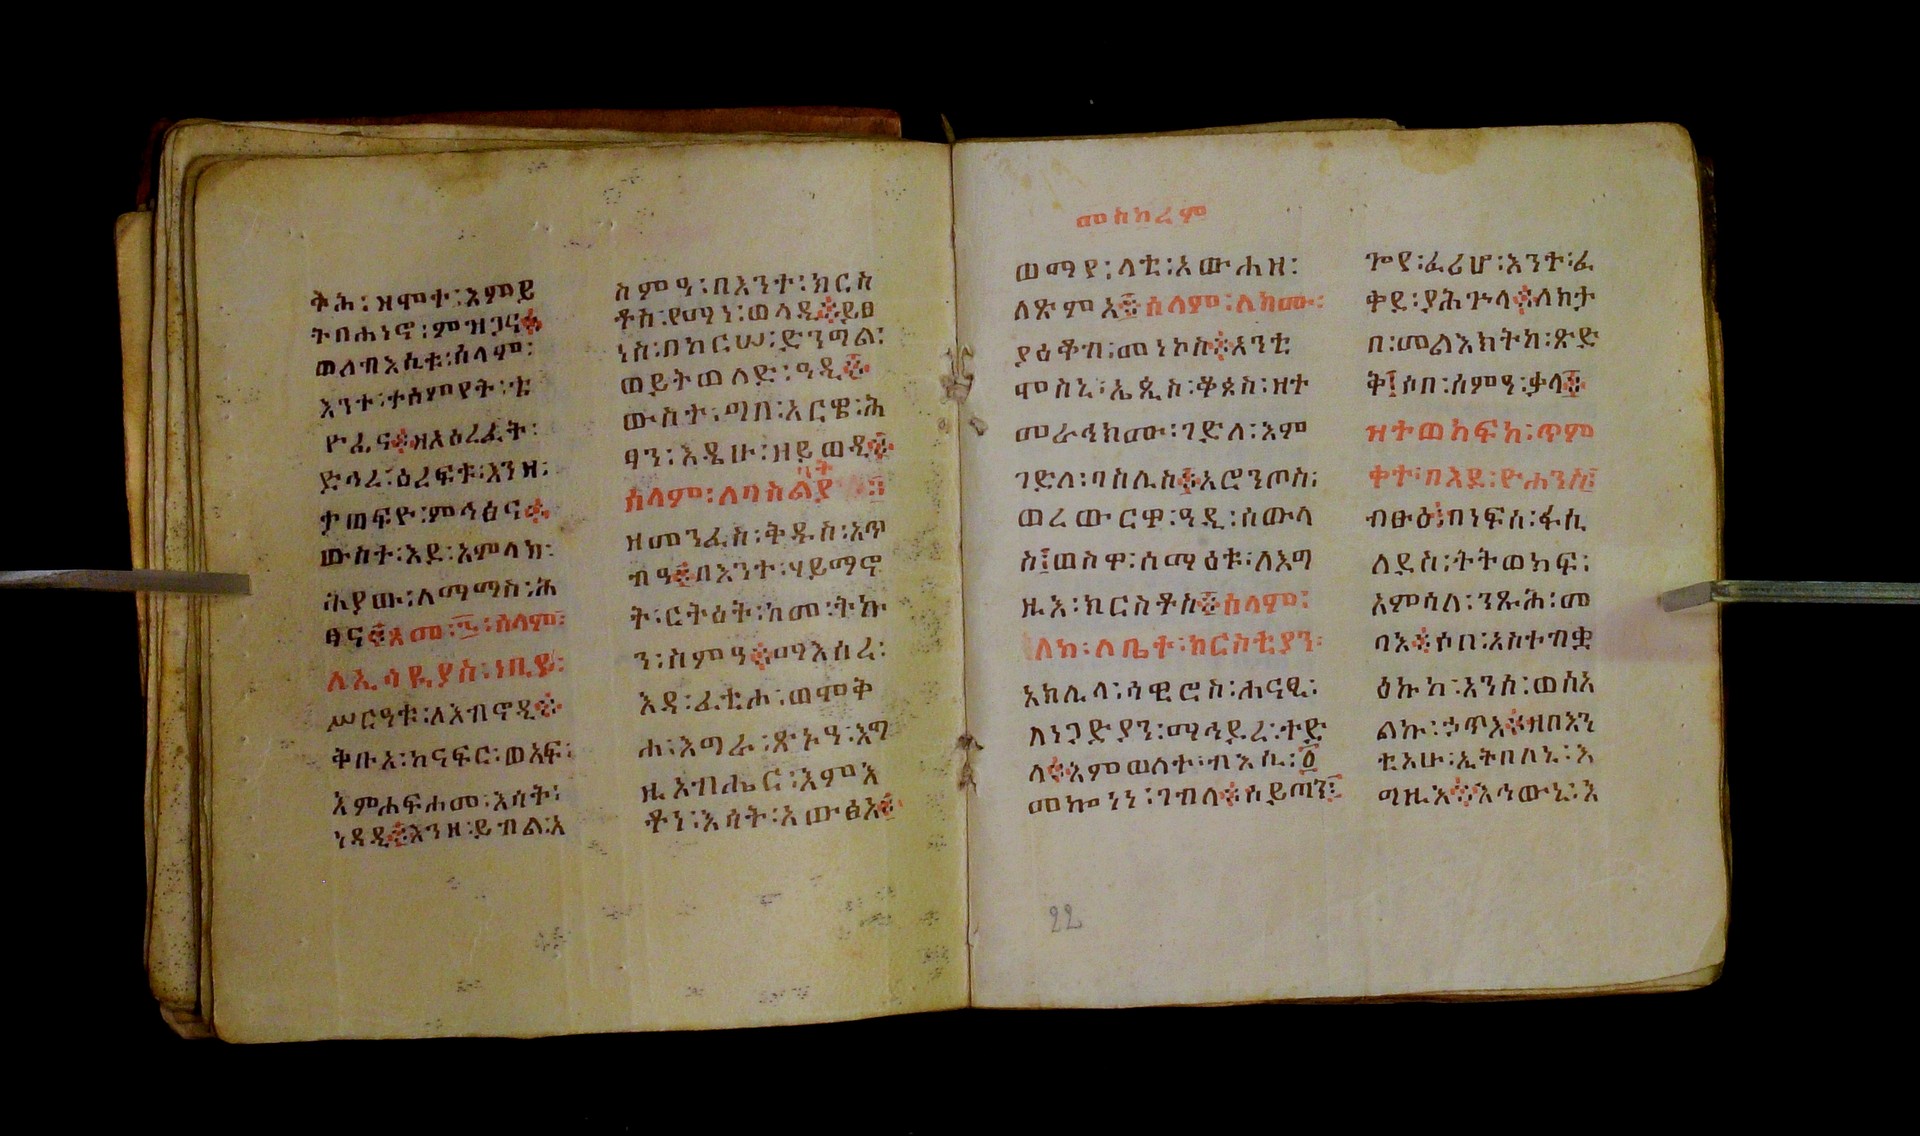 ቅሕ፡ ዝሞተ፡ እምይ
ትበሐነኖ፡ ምዝጋና።
ወለብእሲቱ፡ ሰላም፡
እንተ፡ ተሰምየት፡ ቴ
ዮፈና። ዘአዕረፈት፡
ድኅረ፡ ዕረፍቱ፡ እንዘ፡
ታወፍዮ፡ ምኅፅና።
ውስተ፡ እደ፡ አምላክ፡
ሕያው፡ ለማማስ፡ ሕ
ፃና። አመ፡ ፮፡ ሰላም፡
ለኢሳይያስ፡ ነቢይ፡
ሥርዓቱ፡ ለአብኖዲ።
ቅቡአ፡ ከናፍር፡ ወአፍ፡
እምሐፍሐመ፡ እሳት፡
ነዳዲ። እንዘ፡ ይብል፡ አ
ስምዓ፡ በእንተ፡ ክርስ
ቶስ፡ የማነ፡ ወላዲ። ይፀ
ነስ፡ በከርሠ፡ ድንግል፡
ወይትወለድ፡ ዓዲ።
ውስተ፡ ግበ፡ አርዌ፡ ሕ
ፃን፡ እዴሁ፡ ዘይወዲ።
ሰላም፡ ለባስልያ
ዘመንፈስ፡ ቅዱስ፡ አጥ
ብዓ። በእንተ፡ ሃይማኖ
ት፡ ርትዕት፡ ከመ፡ ትኩ
ን፡ ስምዓ። ማእሰረ፡
እዳ፡ ፈቲሖ፡ ወሞቅ
ሐ፡ እግራ፡ ጽኑዓ፡ እግ
ዚአብሔር፡ እምእ
ቶነ፡ እሳት፡ አውፅአ።
መስከረም
ወማየ፡ ላቲ፡ አውሐዘ፡
ለጽምአ። ሰላም፡ ለክሙ፡
ያዕቆብ፡ መነኮስ። አንቲ
ሞስኒ፡ ኤጲስ፡ ቆጶስ፡ ዘተ
መራኅክሙ፡ ገድለ፡ እም
ገድለ፡ ባስሊስ። አሮንጦስ፡
ወረውርዋ፡ ዓዲ፡ ሰውላ
ስ፤ ወስዋ፡ ሰማዕቱ፡ ለእግ
ዚእ፡ ክርስቶስ። ሰላም፡
ለከ፡ ለቤተ፡ ክርስቲያን፡
አክሊላ፡ ሳዊሮስ፡ ሐናፂ፡
ለነጋድያን፡ ማኅደረ፡ ተድ
ላ። እምወለተ፡ ብእሲ፡ ፩
መኰነነ፡ ገብላ። ሰይጣን፤
ጕያ፡ ፈሪሆ፡ እንተ፡ ፈ
ቀደ፡ ያሕጕላ። ለከታ
በ፡ መልእክትከ፡ ጽድ
ቅ፤ ሶበ፡ ሰምዓ፡ ቃላ።
ዝትወከፍከ፡ ጥም
ቀተ፡ በእደ፡ ዮሐንስ፤
ብፁዕ፡ በነፍስ፡ ፋሲ
ለደስ፡ ትትወከፍ፡
አምሳለ፡ ንጹሕ፡ መ
ባእ። ሶበ፡ አስተብቋ
ዕኩከ፡ አንሰ፡ ወስእ
ልኩ፡ ኃጥእ። ዘበእን
ቲአሁ፡ ኢትበለኒ፡ እ
ግዚእ። አኀውኒ፡ እ
22